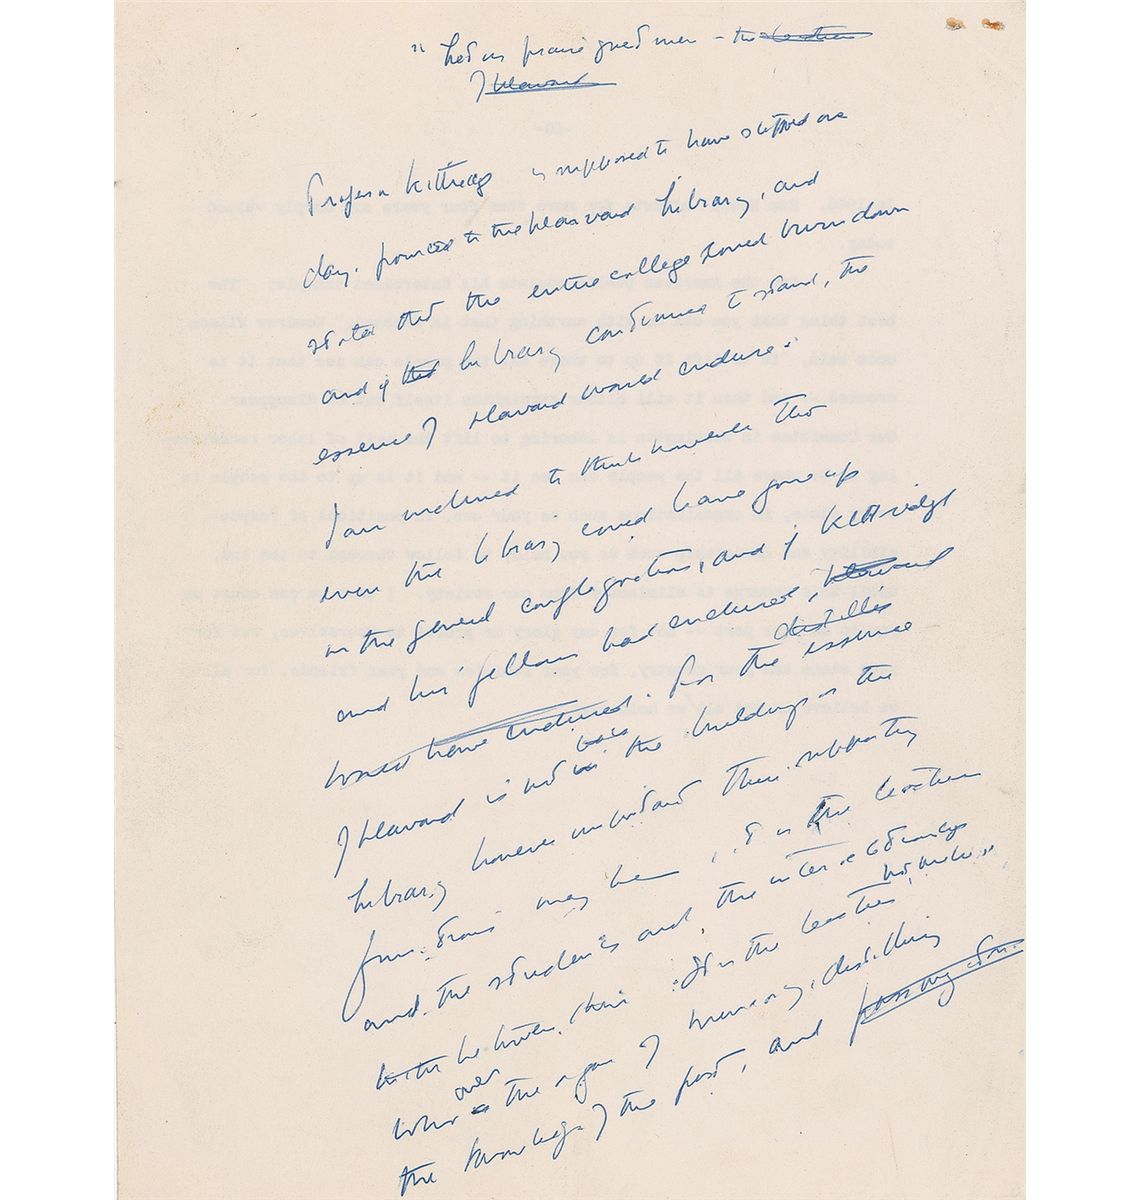 " Let us praise great men - the teachers
of Harvard
Professor Kittredge is supposed to have stopped one
day, pointed to the Harvard Library, and
stated that the entire college could burn down
and if that library continued to stand, the
essence of Harvard would endure.
I am inclined to think however that
even the library could have gone up
in the general conflagration, and if Kittredge
and his fellows had endured, Harvard
would have endured. For the distilled essence
of Harvard is not in the buildings or the
library however important their supporting
functions may be, it is the teachers
and the students and the inter relationship
with between them. It is the teachers, not
who are the organ of memory, distilling
the knowledge of the past, and passing it on